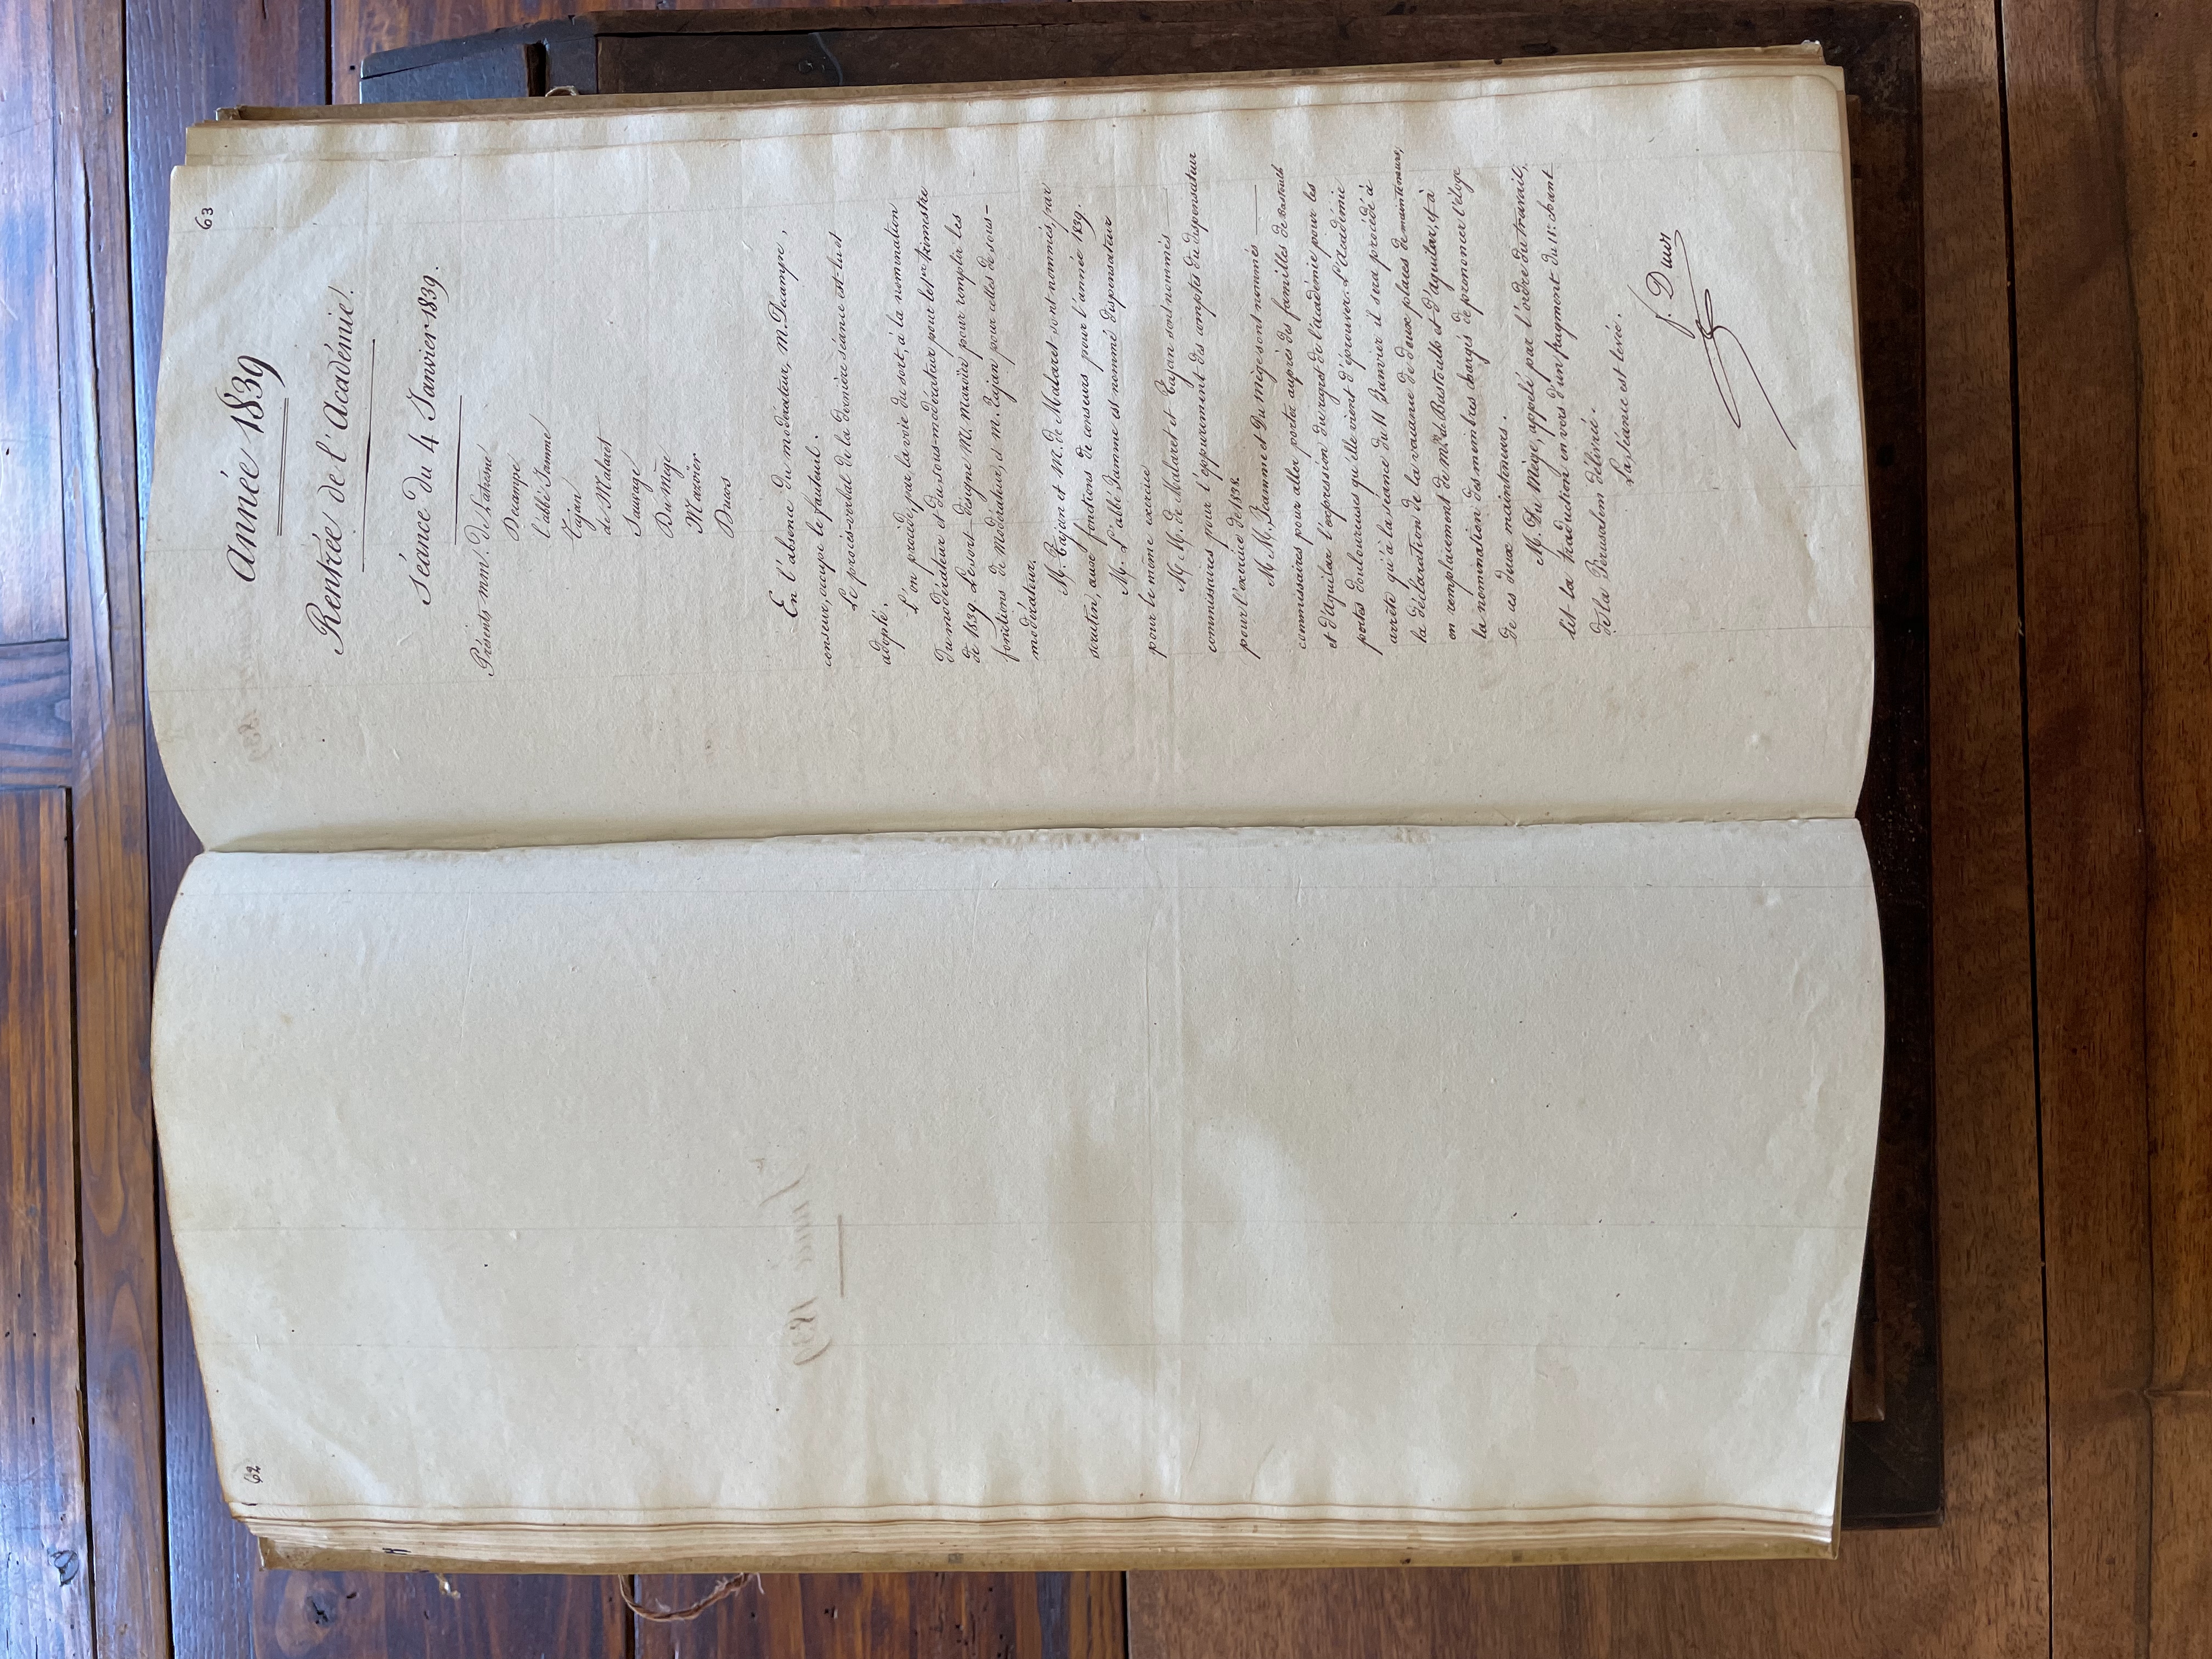 62
63
Année 1839
Rentrée de l'Académie.
Séance du 4 Janvier 1839.
Présents mm. de Latresne
Decampe
l'abbé Jamme
Tajan
de Malaret
Sauvage
Du mège
Mazoier
Ducos
En l'absence du modérateur, M. Decampe,
censeur, occupe le fauteuil.
Le procès-verbal de la dernière séance est lu et
adopté.
L'on procède, par la voie du sort, à la nomination
du modérateur et du sous-modérateur pour le 1er trimestre
de 1839. Le sort désigne M. Mazoïer pour remplir les
fonctions de Modérateur, et M. Tajan pour celles de sous-
modérateur.
M. Tajan et M. de Malaret sont nommés, par
scrutin, aux fonctions de censeurs pour l'année 1839.
M. L'abbé Jamme est nommé dispensateur
pour le même exercice
M M. de Malaret et Tajan sont nommés
commissaires pour l'appurement des comptes du dispensateur
pour l'exercice de 1838.
M M. Jamme et Du Mège sont nommés
commissaires pour aller porter auprès des familles de Bastoulh
et d'Aguilar l'expression du regret de l'académie pour les
pertes douloureuses qu'elle vient d'éprouver. L'Académie
arrête qu'à la séance du 11 Janvier il sera procédé à
la déclaration de la vacance de deux places de mainteneurs,
en remplacement de MM. de Bastoulh et d'Aguilar, et à
la nomination des membres chargés de prononcer l'éloge
de ces deux mainteneurs.
M. Du Mège, appelé par l'ordre du travail,
lit la traduction en vers d'un fragment du 11e chant
de la Jérusalem délivrée.
La séance est levée.
f. Ducos